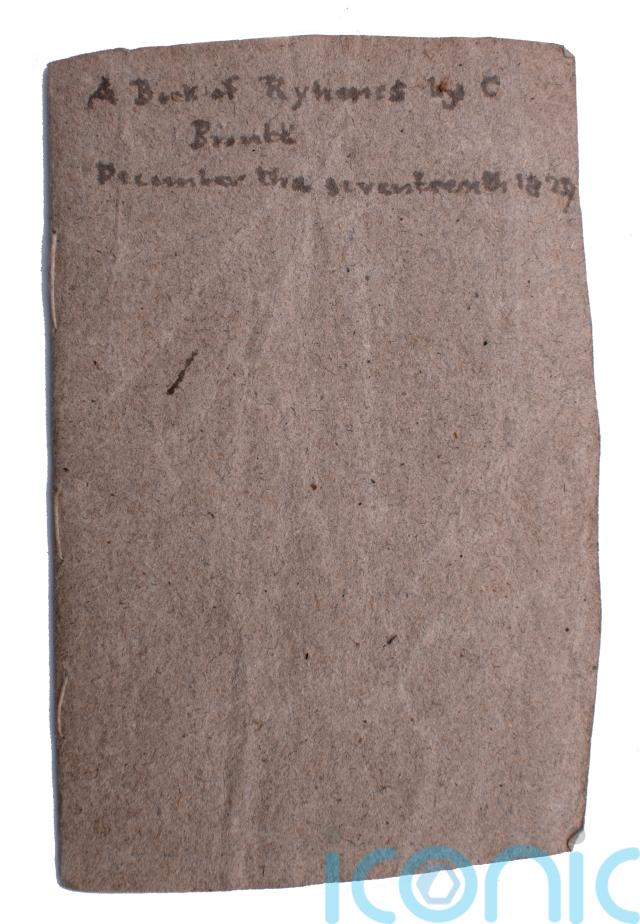 A Book of Ryhmes by C
Bronte
December the seventeenth 1829
iconic